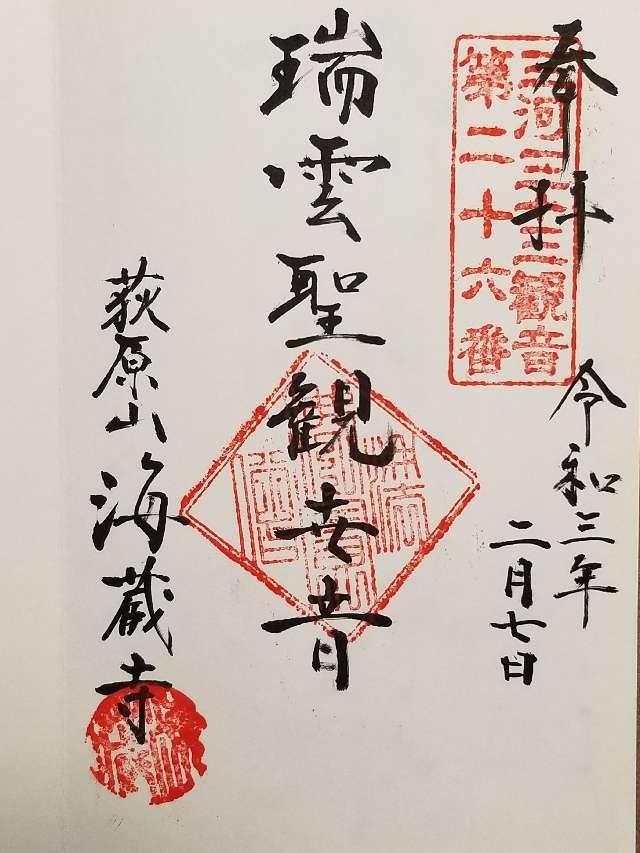 奉拝
三河三十三観音
第二十六番
令和三年
二月七日
瑞雲聖観世音
荻原山海蔵寺